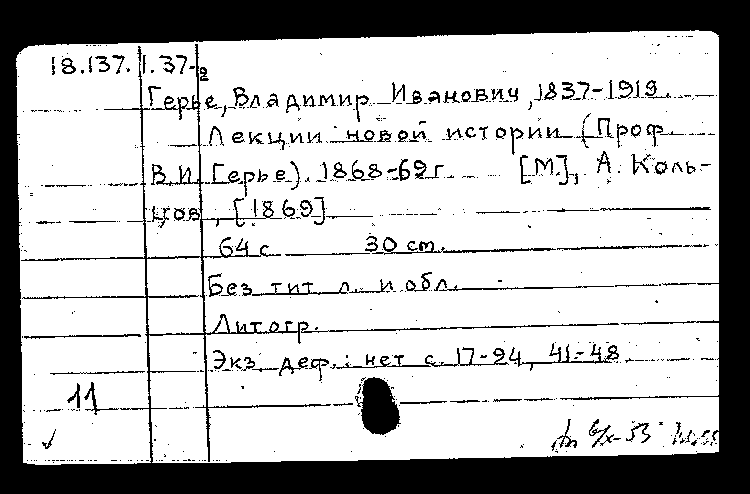 18.137. 1.37-2
Герье, Владимир Иванович, 1837-1919.
Лекции новой истории (Проф.
В.И. Герье). 1868-69 г. [М.], А. Коль-
цов, [1869].
64 с 30 ст.
Без тит. л. и обл.
Литогр.
Экз. деф.: нет с. 17-24, 41-48.
11